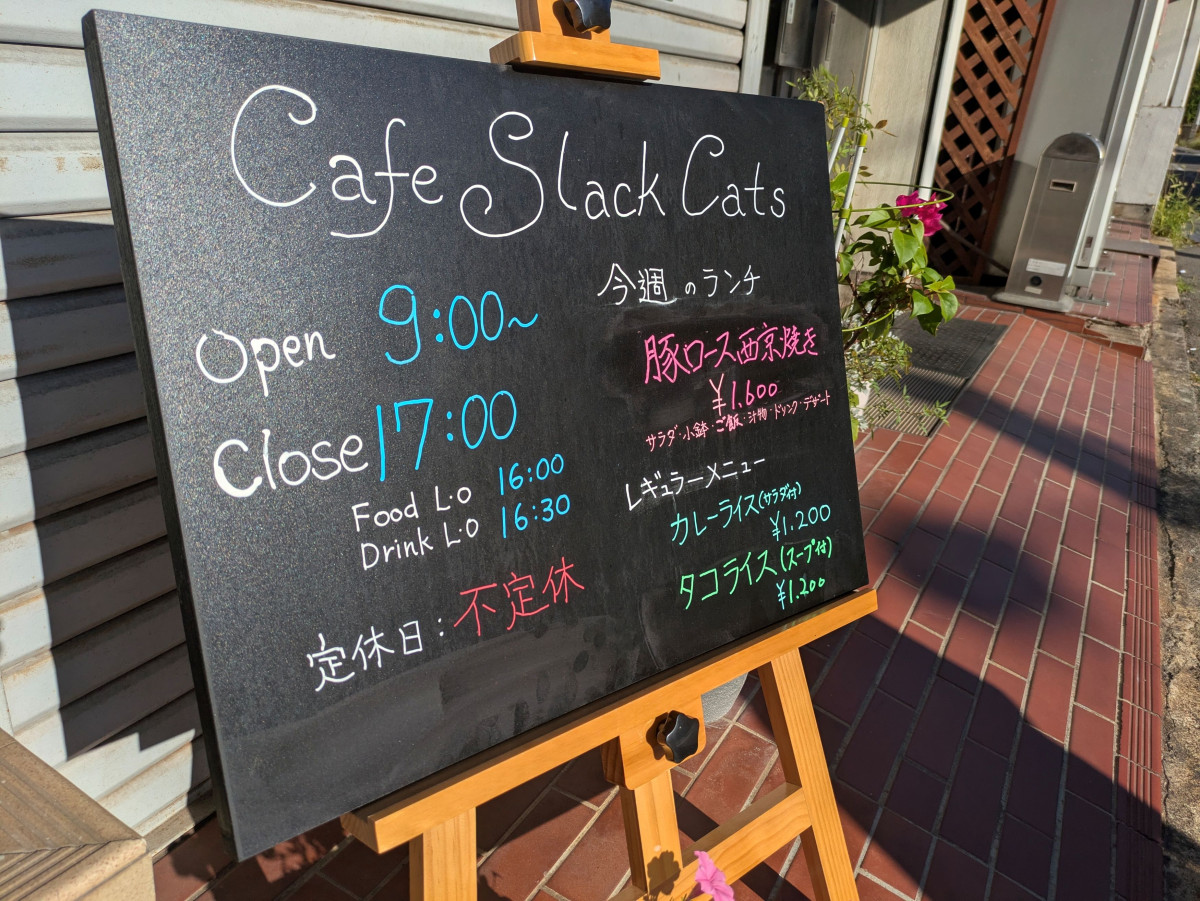 Cafe Slack Cats
Open 9:00~
Close 17:00
Food L.O 16:00
Drink L.O 16:30
定休日:不定休
今週のランチ
豚ロース西京焼き
¥1.600
サラダ・小鉢・ご飯・汁物・ドリンク・デザート
レギュラーメニュー
カレーライス(サラダ付)
¥1.200
タコライス(スープ付)
¥1.200